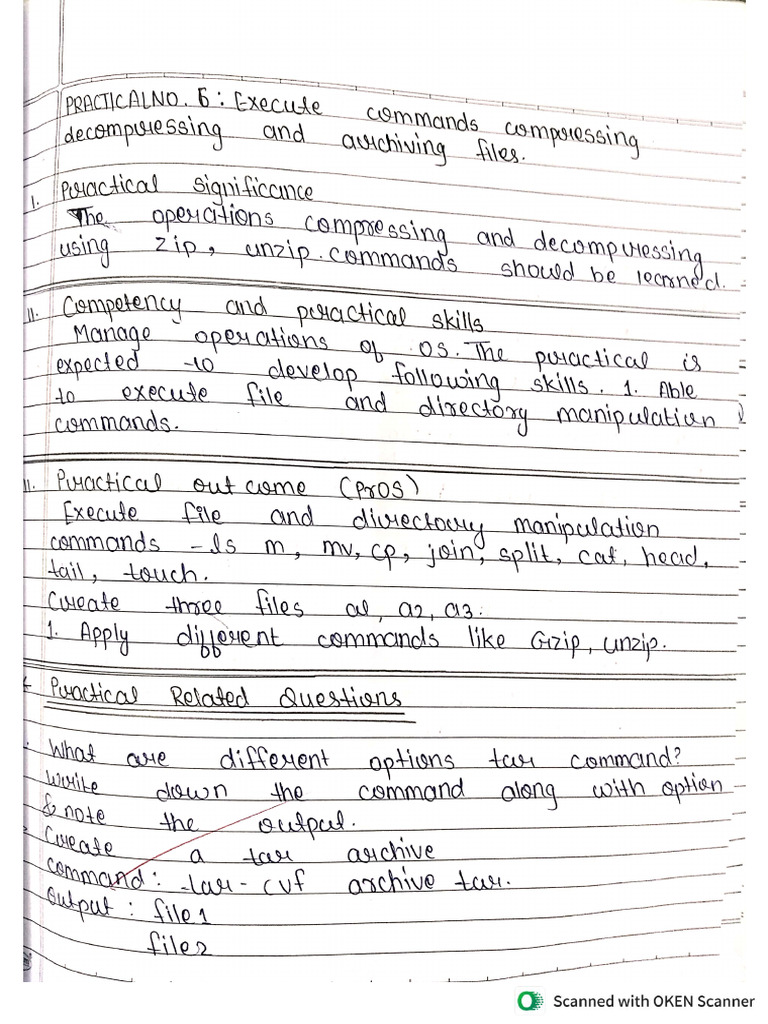 PRACTICAL NO. 6: Execute commands compressing
decompressing and archiving files.
I. Practical significance
The operations compressing and decompressing
using zip, unzip. commands should be learned.
II. Competency and practical skills
Manage operations of OS. The practical is
expected to develop following skills. 1. Able
to execute file and directory manipulation
commands.
II. Practical out come (PrOS)
Execute file and directory manipulation
commands - ls m, mv, cp, join, split, cat, head,
tail, touch.
Create three files a1, a2, a3.
1. Apply different commands like Gzip, unzip.
Practical Related Questions
What are different options tar command?
Write down the command along with option
& note the output.
Create a tar archive
command: -tar - cvf archive tar.
output: file1
file2
Scanned with OKEN Scanner